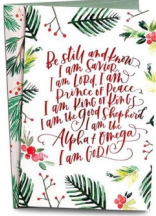 Be still and know
I am Savior,
I am Lord, I am
Prince of Peace
I am King of Kings
I am the Good Shepherd
I am the
Alpha & Omega
I am GOD!